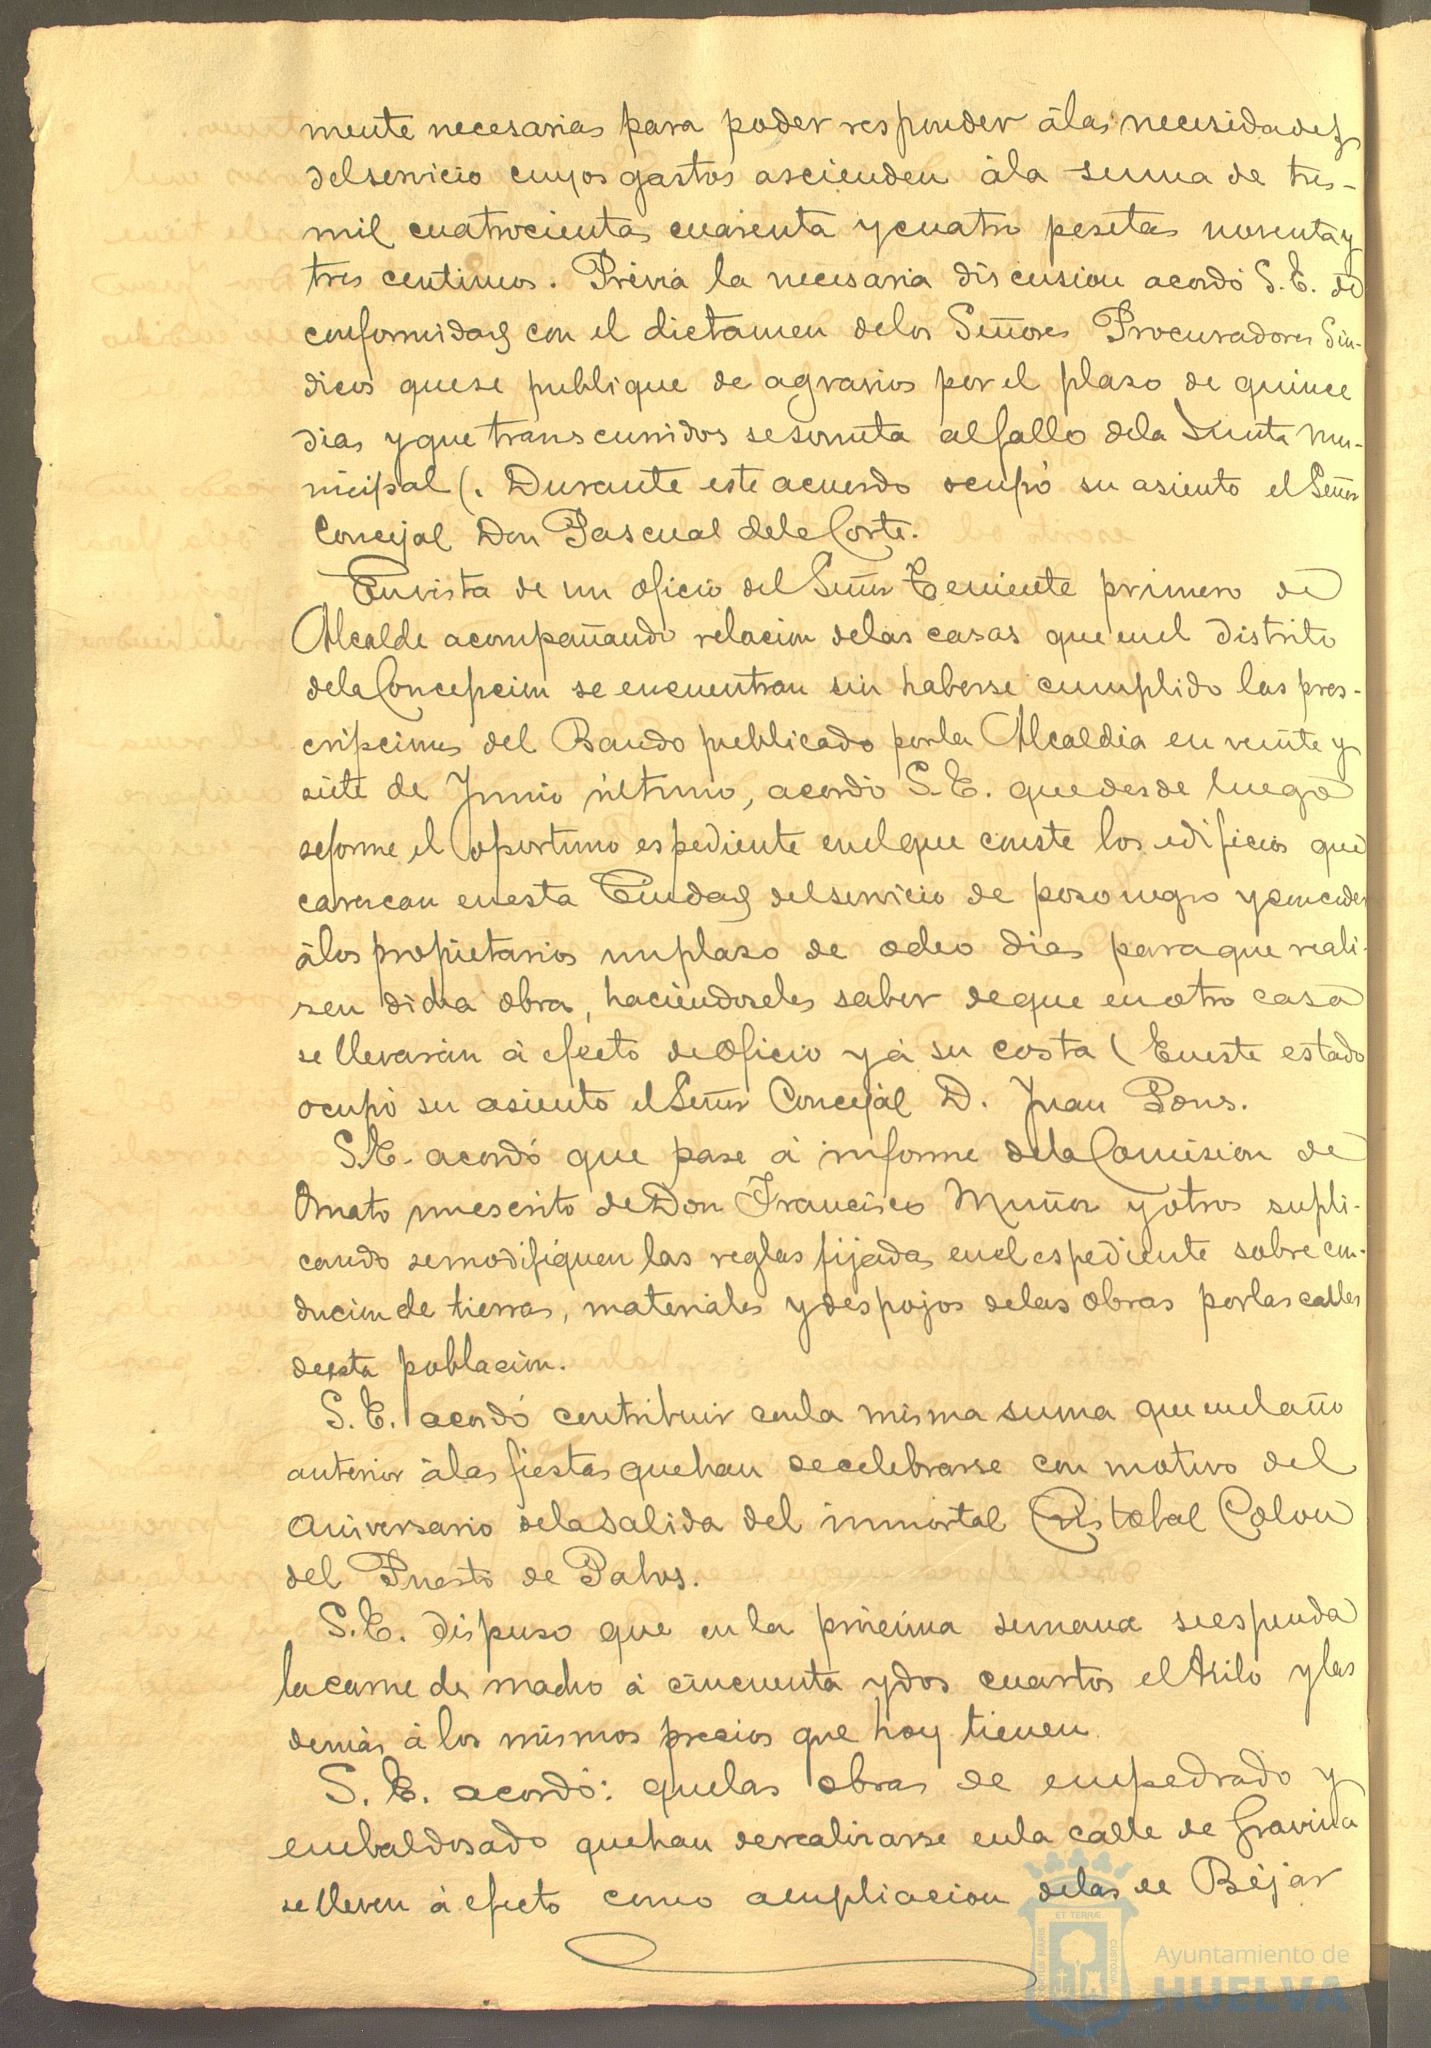 mente necesarias para poder responder á las necesidades
del servicio cuyos gastos ascienden á la suma de tres-
mil cuatrocientas cuarenta y cuatro pesetas noventa y
tres centimos. Prévia la necesaria discusion acordó S. E. de
conformidad con el dictamen de los Señores Procuradores Sin-
dicos que se publique de agravios por el plaso de quince
dias y que transcurridos se someta al fallo de la Junta Mu-
nicipal (. Durante este acuerdo ocupó su asiento el Señor
Concejal Don Pascual de la Corte.
En vista de un oficio del Señor Teniente primero de
Alcalde acompañando relacion de las casas que en el distrito
de la Concepcion se encuentran sin haberse cumplido las pres-
cripciones del Bando publicado por la Alcaldia en veinte y
siete de Junio último, acordó S. E. que desde luego
se forme el oportuno espediente en el que conste los edificios que
carescan en esta Ciudad del servicio de poso negro y conceder
á los propietarios un plaso de ocho dias para que reali-
sen dicha obra, haciéndoseles saber de que en otro caso
se llevarán á efecto de oficio y á su costa ( En este estado
ocupó su asiento el Señor Concejal D. Juan Pons.
S. E. acordó que pase á informe de la Comision de
Ornato un escrito de Don Francisco Muñoz y otros supli-
cando se modifiquen las reglas fijadas en el espediente sobre con-
ducion de tierras, materiales y despojos de las obras por las calles
de esta poblacion.
S. E. acordó contribuir con la misma suma que en el año
anterior á las fiestas que han de celebrarse con motivo del
aniversario de la salida del inmortal Cristobal Colon
del Puerto de Palos.
S. E. dispuso que en la prócima semana se espenda
la carne de macho á cincuenta y dos cuartos el kilo y las
demás á los mismos precios que hoy tienen
S. E. acordó: que las obras de empedrado y
embaldosado que han de realizarse en la calle de Gravina
se lleven á efecto como ampliacion de las de Béjar
Ayuntamiento de
HUELVA